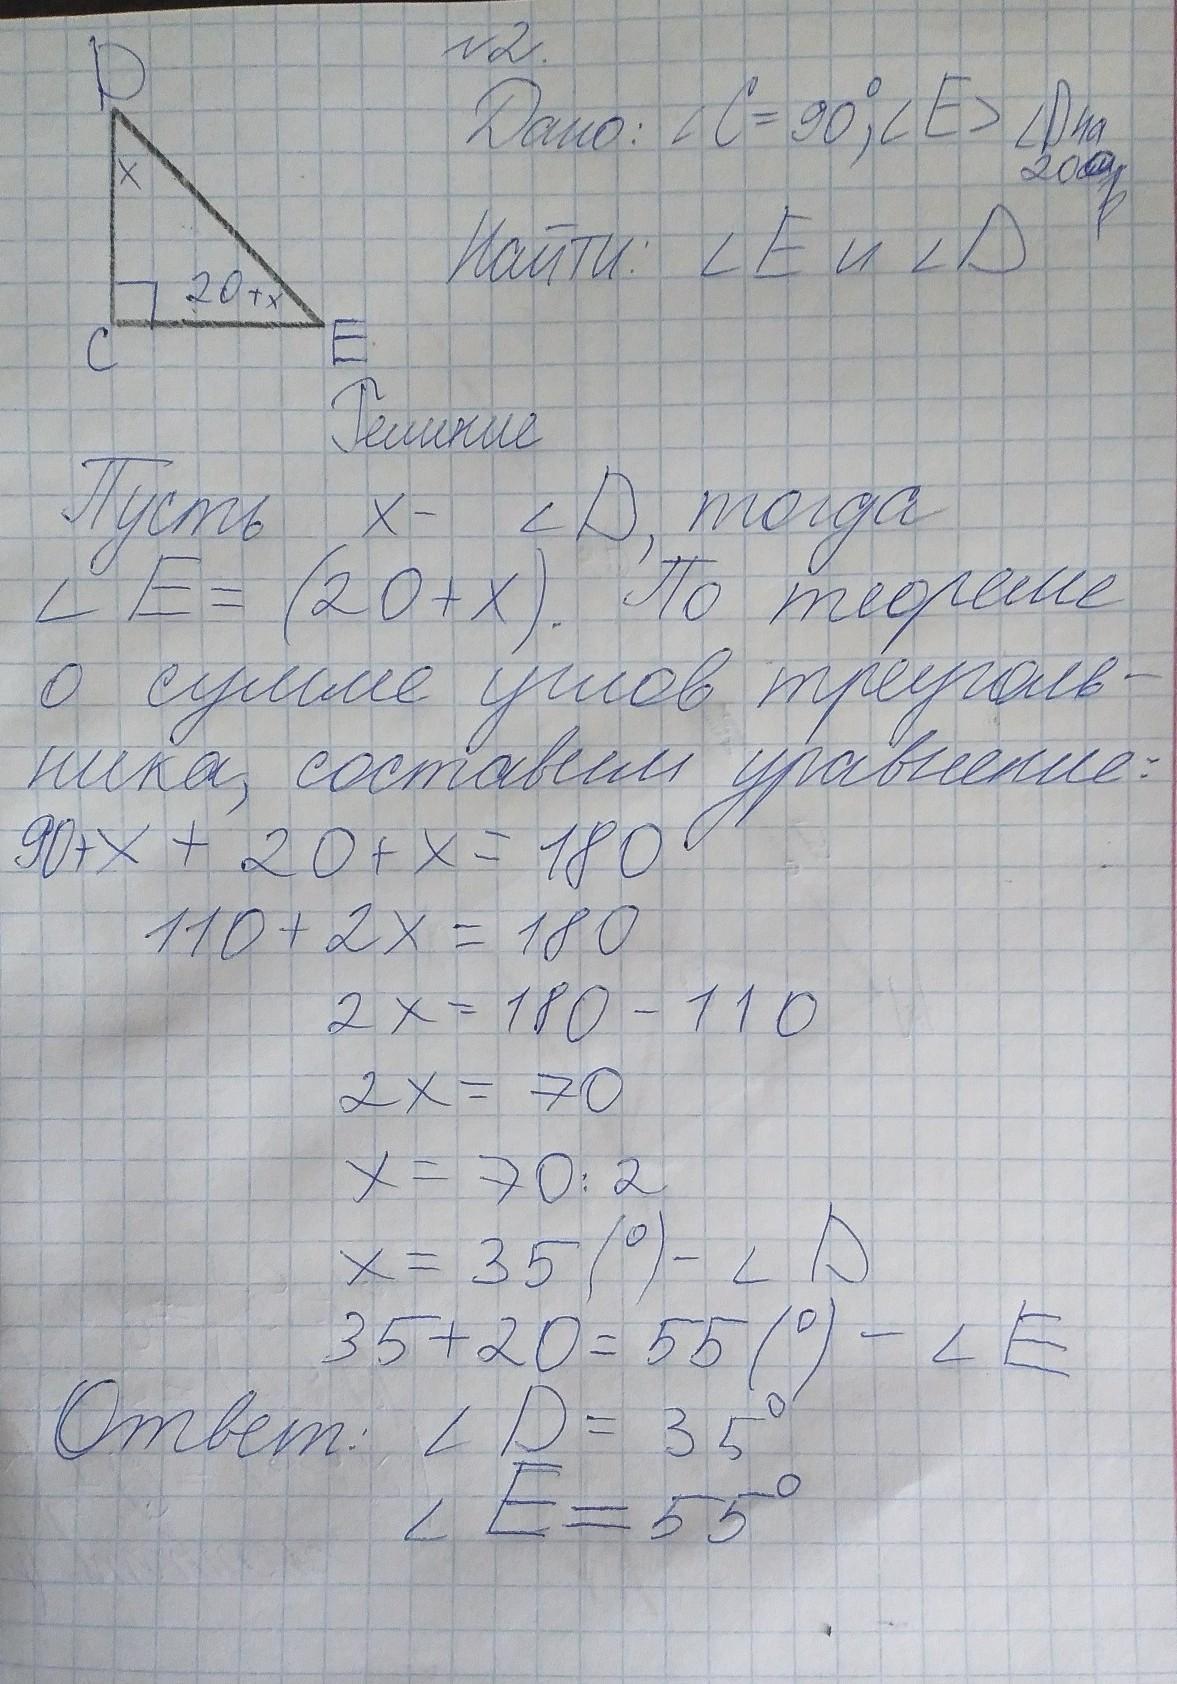 №2.
D
Дано: ∠C = 90°, ∠E > ∠D на
20 гр
x
Найти: ∠E и ∠D
20+x
C
E
Решение
Пусть x - ∠D, тогда
∠E = (20+x). По теореме
о сумме углов треуголь-
ника, составим уравнение:
90+x + 20+x = 180
110 + 2x = 180
2x = 180 - 110
2x = 70
x = 70:2
x = 35 (°) - ∠D
35+20 = 55 (°) - ∠E
Ответ: ∠D = 35°
∠E = 55°